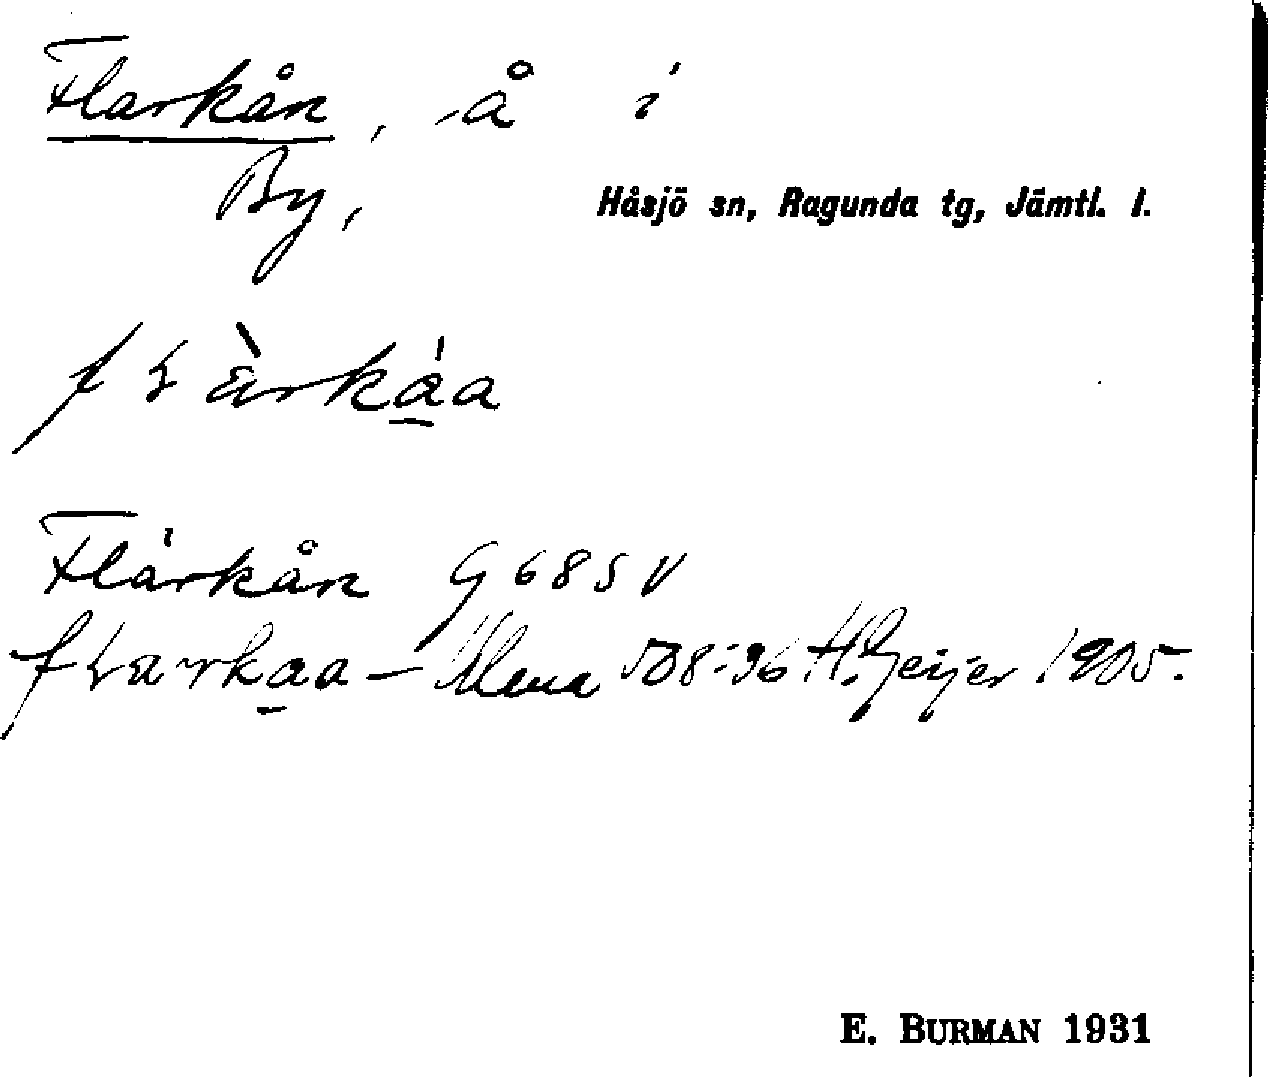 Flarkån, å i
By, Håsjö sn, Ragunda tg, Jämtl. l.
fLàrkáa
Flárkån G 68 S V
fLarkaa – H. Geijer 1905.
E. BURMAN 1931